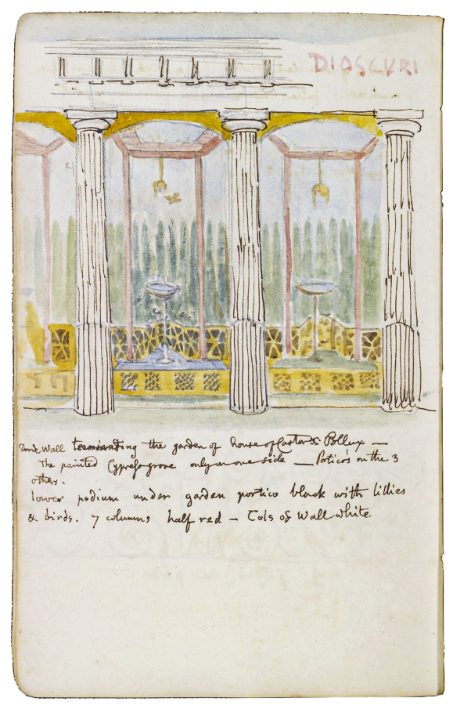 DIOSCURI
Wall terminating the garden of house of Castor & Pollux —
The painted Cypress grove only on one side — Porticos on the 3
others.
lower podium under garden portico black with lillies
& birds. 7 columns half red — Cols of Wall white